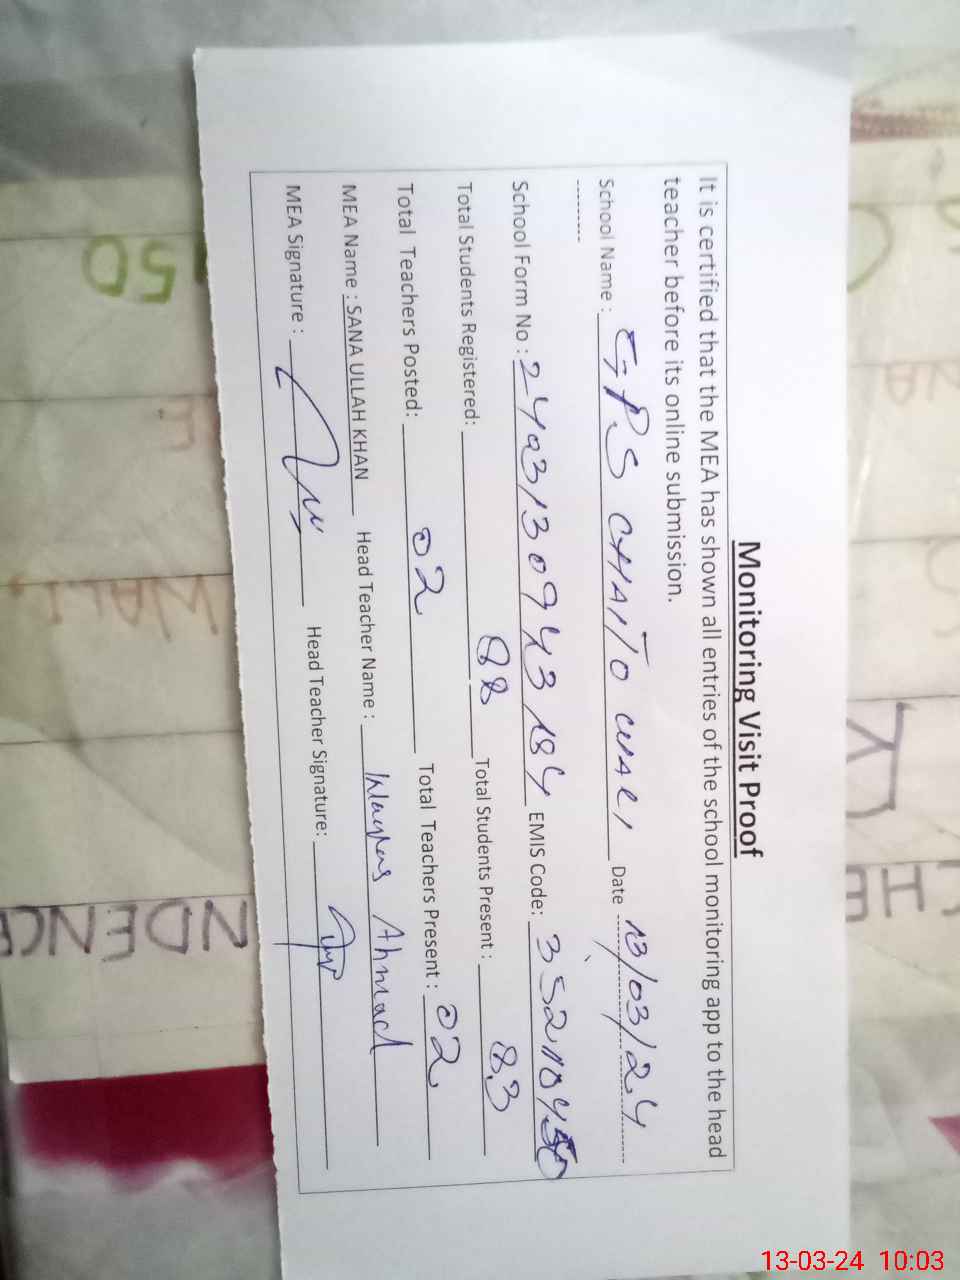 Monitoring Visit Proof
It is certified that the MEA has shown all entries of the school monitoring app to the head
teacher before its online submission.
School Name : GPS CHAITO WALI Date 13/03/24
School Form No : 2493130943184 EMIS Code:
Total Students Registered: 88 Total Students Present : 83
Total Teachers Posted: 02 Total Teachers Present : 02
MEA Name : SANA ULLAH KHAN Head Teacher Name : Ahmad
MEA Signature : Head Teacher Signature:
150
WALI
NDENCE
CHE
13-03-24 10:03